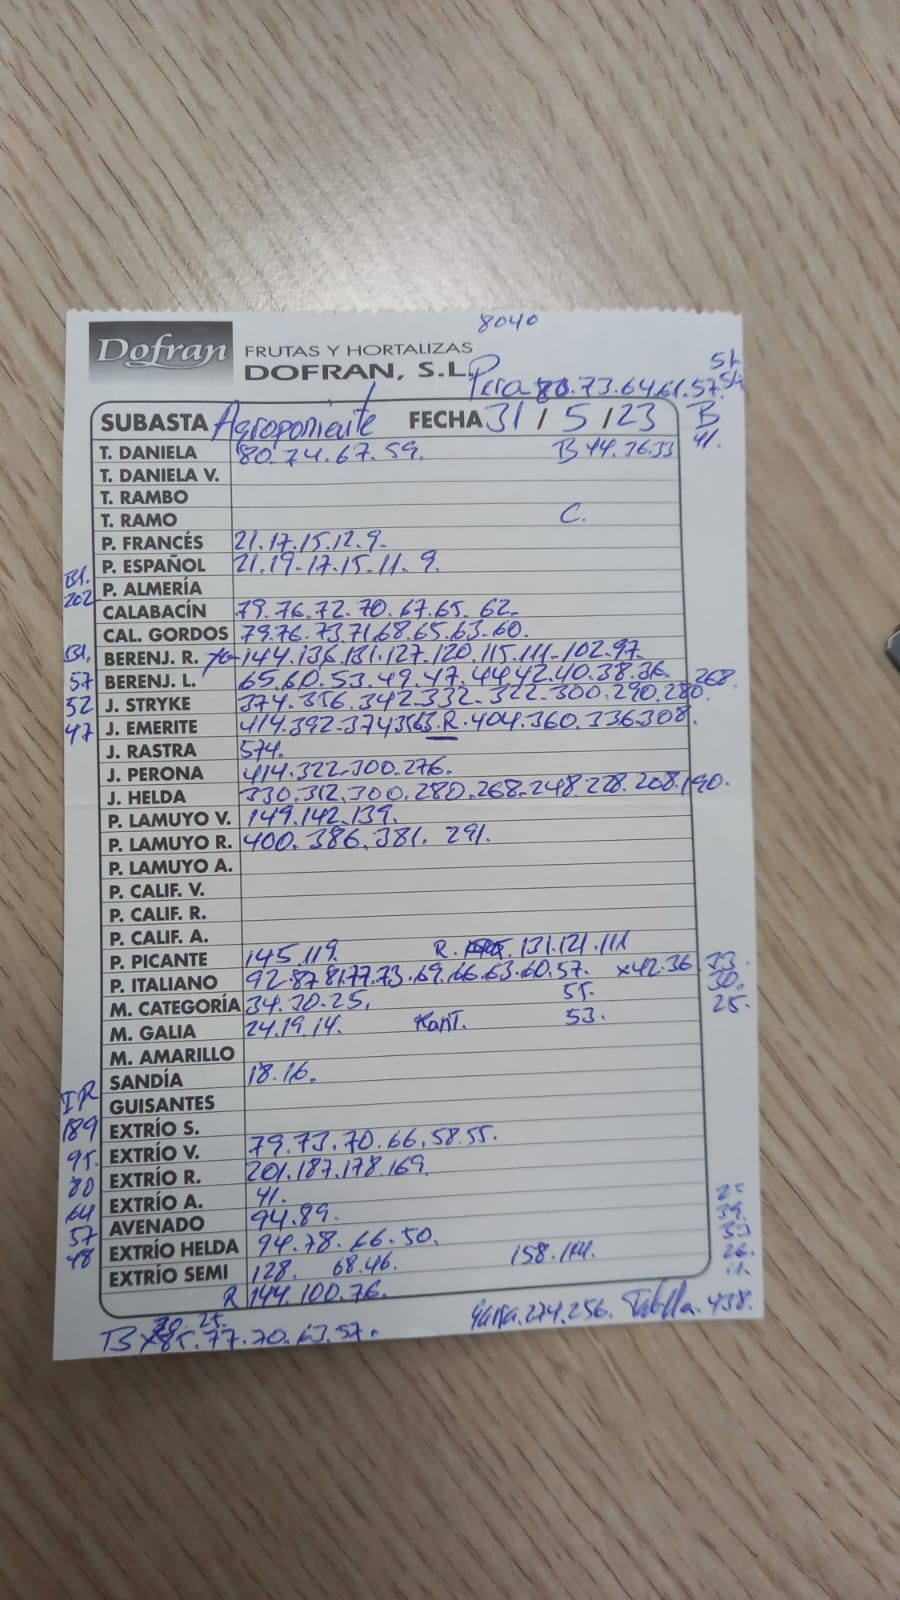 8040
Dofran FRUTAS Y HORTALIZAS
DOFRAN, S.L.
Pera 80.73.64.61.57.54
51
SUBASTA Agroponiente FECHA 31 / 5 / 23 B
41.
T. DANIELA 80.74.67.59. B 44.36.33
T. DANIELA V.
T. RAMBO
T. RAMO C.
P. FRANCÉS 21.17.15.12.9.
P. ESPAÑOL 21.19.17.15.11.9.
Bl.
202 P. ALMERÍA
CALABACÍN 79.76.72.70.67.65.62.
CAL. GORDOS 79.76.73.71.68.65.63.60.
Bl. BERENJ. R. 144.136.131.127.120.115.111.102.97.
57 BERENJ. L. 65.60.53.49.47.44.42.40.38.36.
52 J. STRYKE 374.356.342.332.322.300.290.280.268.
47 J. EMERITE 414.392.374.363.R.404.360.336.308.
J. RASTRA 574.
J. PERONA 414.322.300.276.
J. HELDA 330.312.300.280.268.248.228.208.190.
P. LAMUYO V. 149.142.139.
P. LAMUYO R. 400.386.381.291.
P. LAMUYO A.
P. CALIF. V.
P. CALIF. R.
P. CALIF. A.
P. PICANTE 145.119. R. 131.121.111
P. ITALIANO 92.87.81.77.73.69.66.63.60.57. x42.36.33.
30.
M. CATEGORÍA 34.30.25. 55. 25.
M. GALIA 24.19.14. Kant. 53.
M. AMARILLO
SANDÍA 18.16.
IR GUISANTES
189 EXTRÍO S.
95. EXTRÍO V. 79.73.70.66.58.55.
80 EXTRÍO R. 201.187.178.169
64 EXTRÍO A. 41.
57 AVENADO 94.89. 39.
48 EXTRÍO HELDA 94.78.66.50. 33
EXTRÍO SEMI 128. 68.46. 158.114. 26.
R 144.100.76.
Garra.274.256. Tabilla.438.
30.25.
B x85.77.70.63.57.